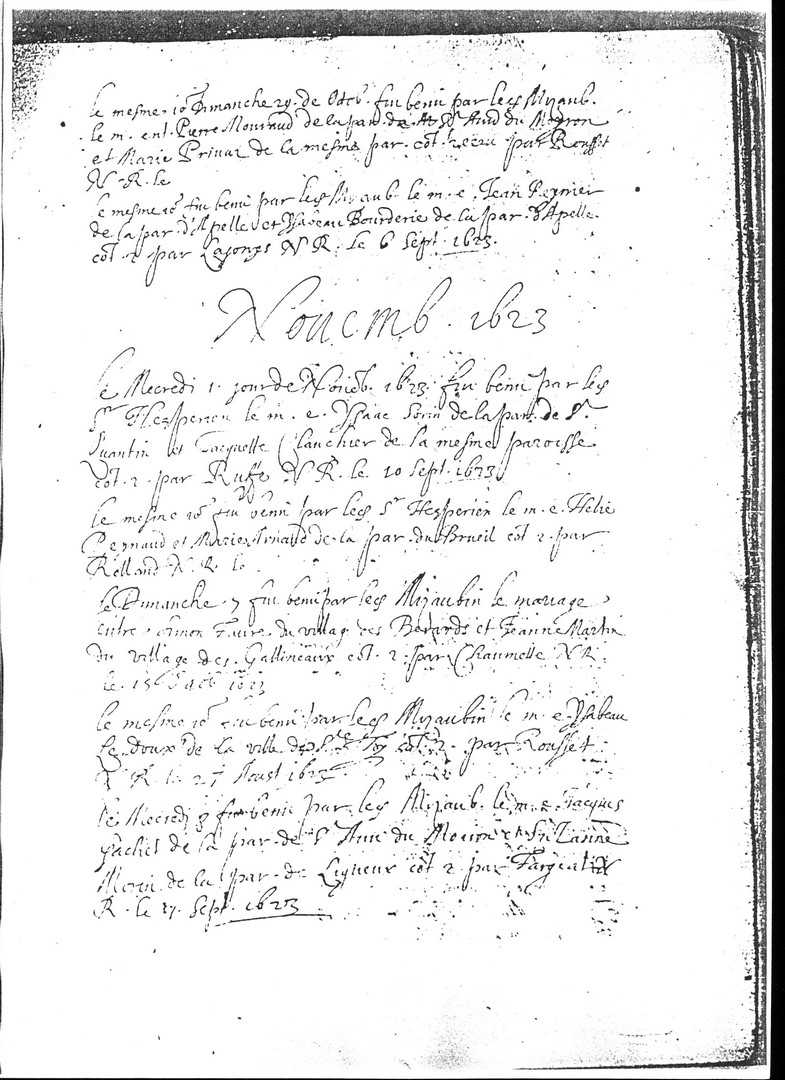 le mesme io.r Dimanche 29. de Octob. fut benii par led.s Mizaub.
le m. ent. Pierre Mouraud de la par. de St And du
et Marie Privat de la mesme par. cōt. receu par Rousset
N. R. le
le mesme io.r fut benii par led.s Mizaub. le m. e. Jean
de la par. d'Apelle et Ysabeau Bourderie de la par. d'Apelle.
cōt. 2 par Lajonges N R. le 6 Sept. 1623.
Nouemb. 1623
le Mecredi 1. jour de Noueb. 1623. fut benii par led.
Sr Hesperien le m. e. Ysaac Sorin de la par. de St
Quantin et Jacquette Clanchier de la mesme paroisse
cōt. 2. par Ruffe N R. le 10 Sept. 1623
le mesme io.r fut benii par led. Sr Hesperien le m. e. Helie
et Marie Arnaud de la par. du Brueil cōt 2. par
Relland N. R. le
le Dimanche fut benii par led. Mizaubin le mariage
entre Simon Faure du village des Berards et Jeanne Martin
du village des Gallineaux cōt. 2. par Chaumette N R.
le. 15 1623
le mesme io.r fut benii par led. Mizaubin le m. e. Ysabeau
Le doux de la ville de Ste Foy cōt. 2. par Rousset
N R. le 27 Aoust 1623
le Mecredi 8 fut benii par led. Mizaub. le m. e. Jacques
de la par. de St Auii du et Suzanne
Morin de la par. de Ligueux cōt 2. par N
R. le 17. Sept. 1623